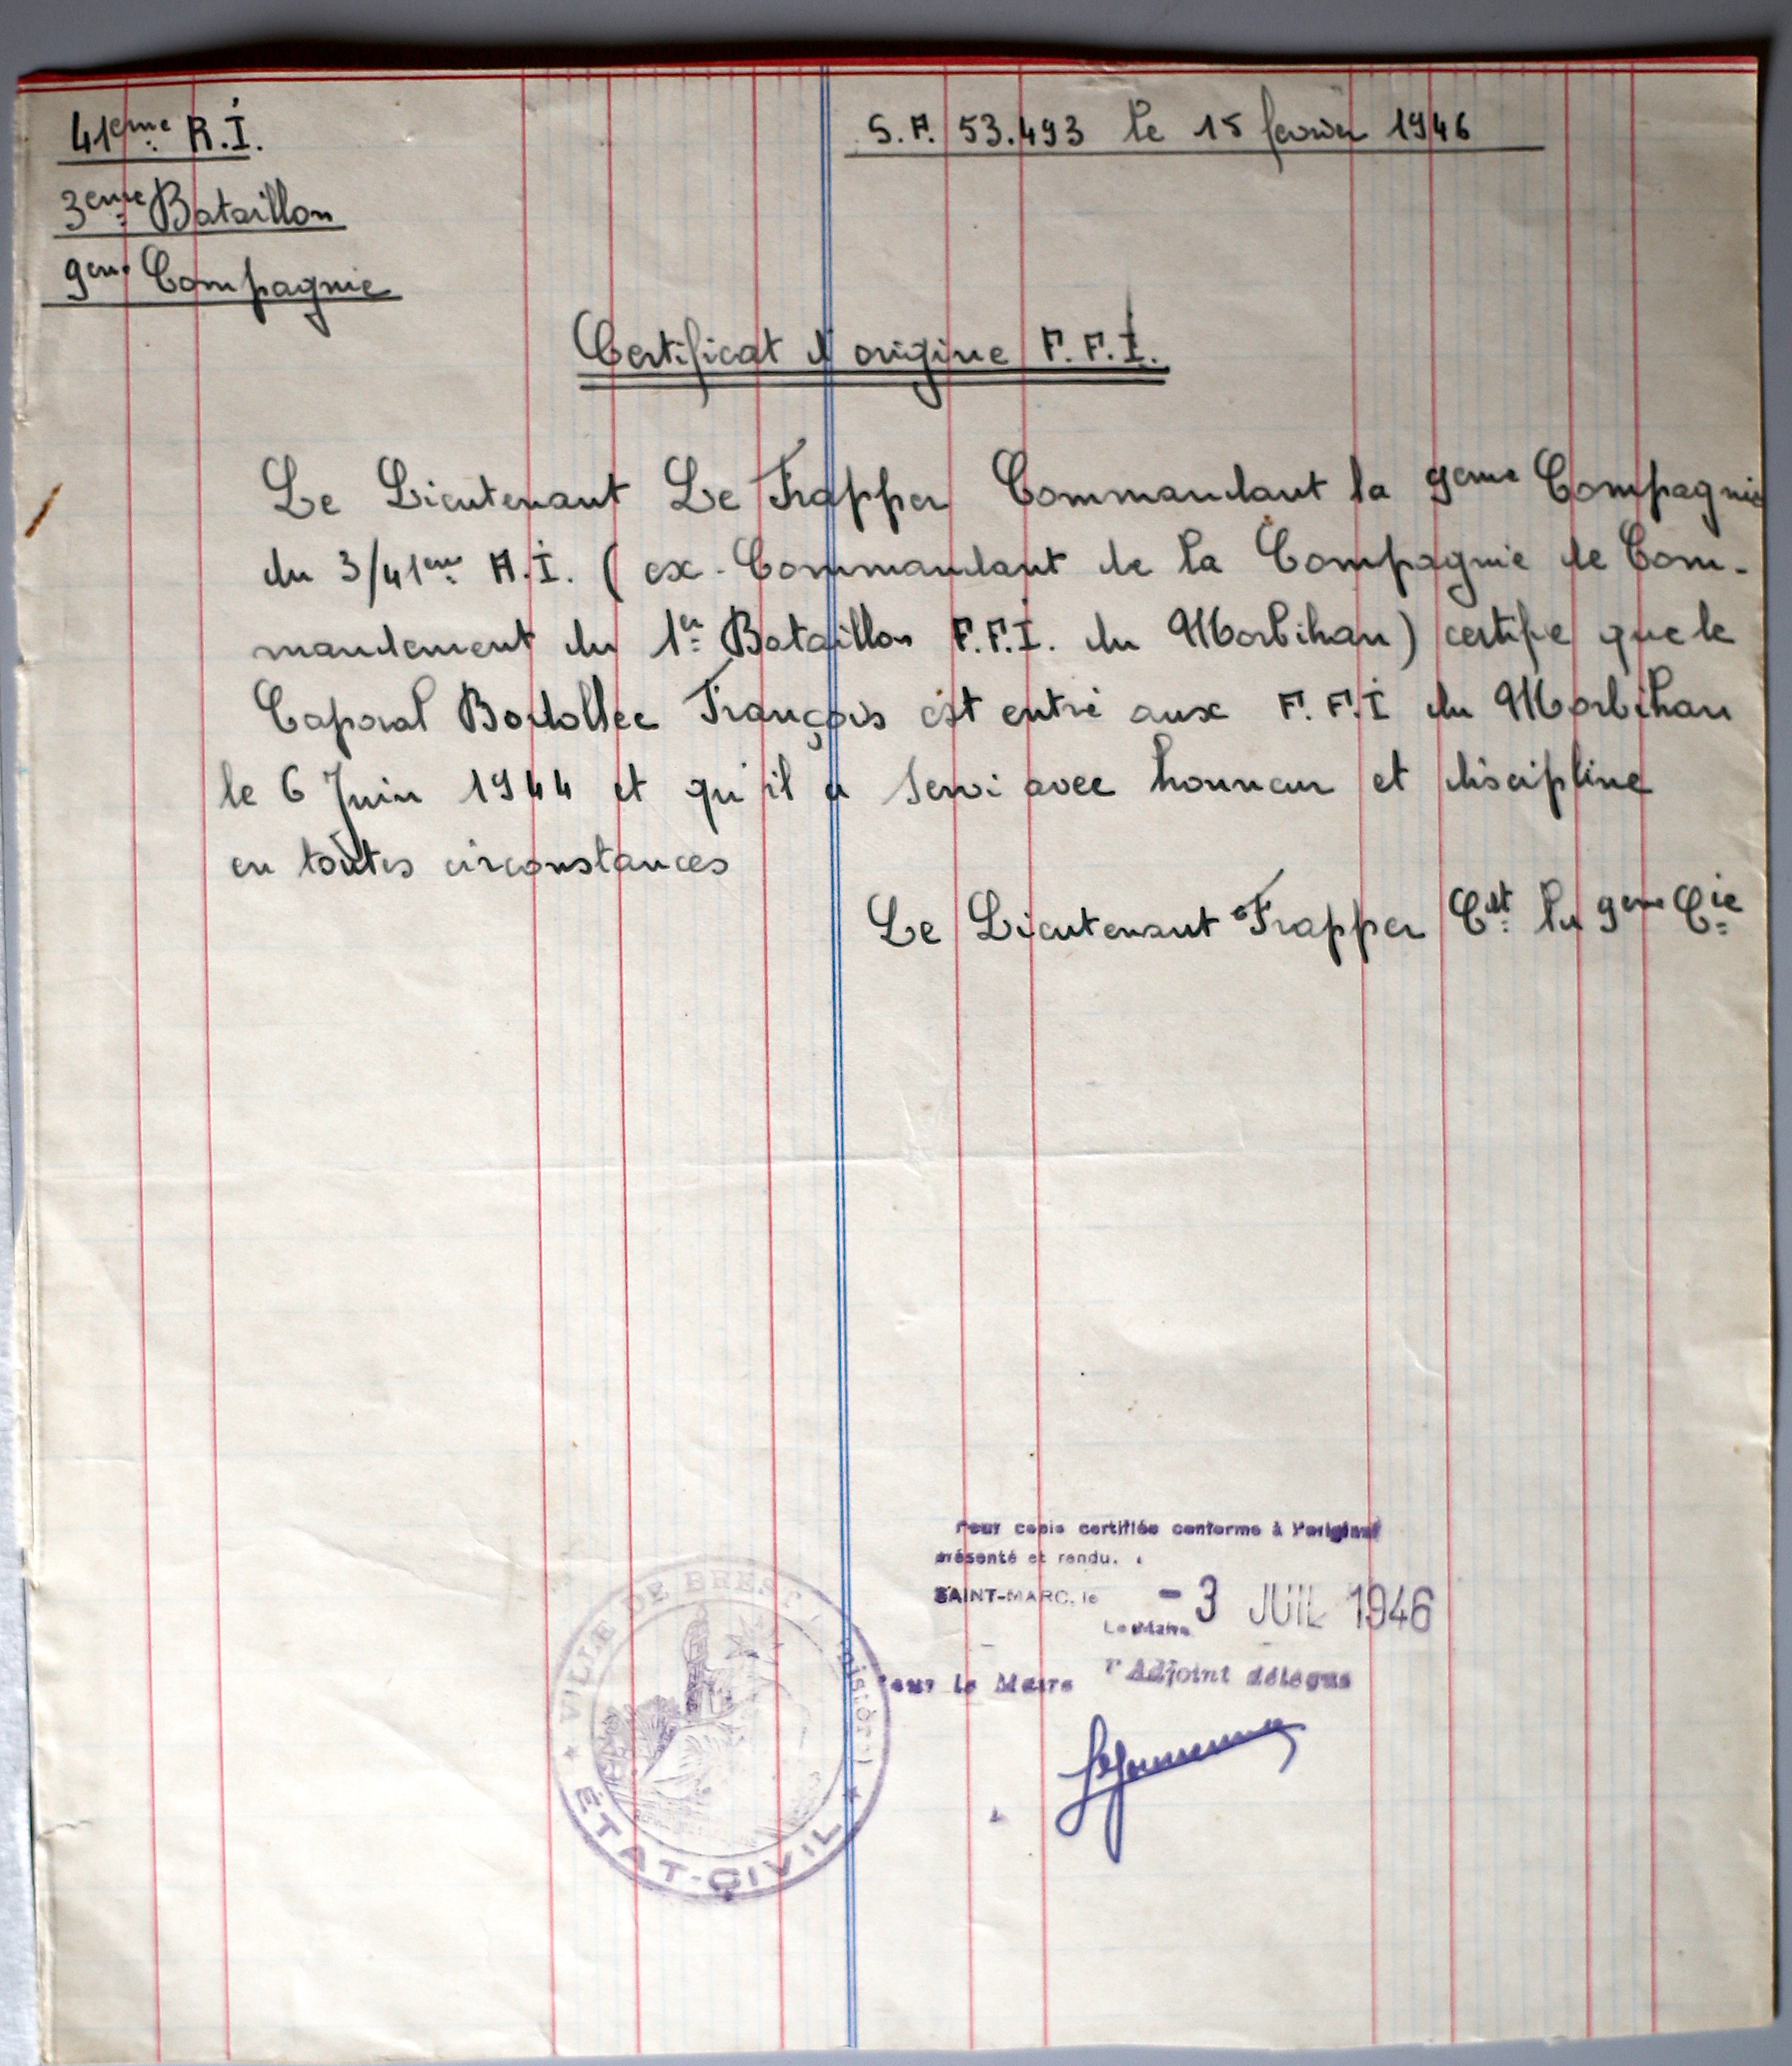 41eme R.I.
S.P. 53.493 le 15 fevrier 1946
3eme Bataillon
9eme Compagnie
Certificat d'origine F.F.I.
Le Lieutenant Le Frapper Commandant la 9eme Compagnie
du 3/41eme R.I. ( ex-Commandant de la Compagnie de Com-
mandement du 1er Bataillon F.F.I. du Morbihan) certifie que le
Caporal Bodollec François est entré aux F.F.I du Morbihan
le 6 Juin 1944 et qu'il a servi avec honneur et discipline
en toutes circonstances
Le Lieutenant Frapper Cdt la 9eme Cie
Pour copie certifiée conforme à l'original
présenté et rendu.
SAINT-MARC, le -3 JUIL 1946
Le Maire
Pour le Maire l'Adjoint délégué
VILLE DE BREST (Finistère)
ÉTAT-CIVIL